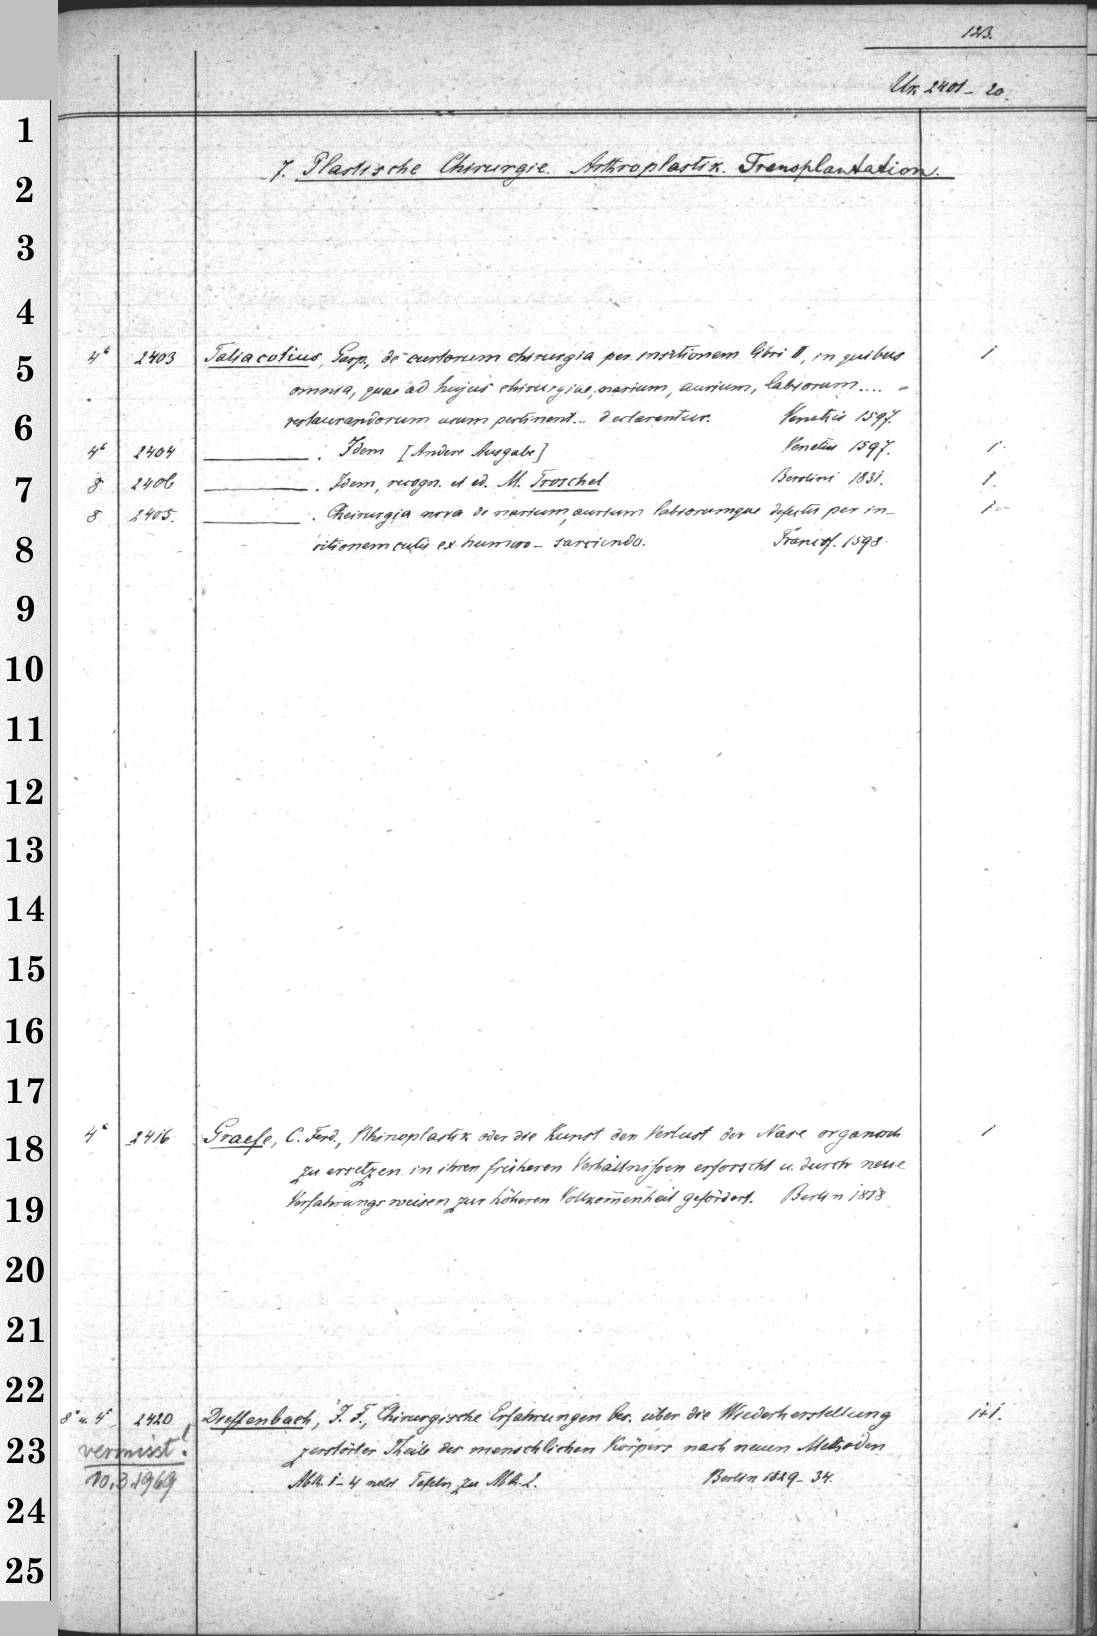 123.
Nr. 2401 - 20.
1
7. Plastische Chirurgie. Arthroplastik. Transplantation.
2
3
4
4° 2403 Taliacotius, Gasp., de curtorum chirurgia per insitionem libri II, in quibus 1
5
omnia, quae ad hujus chirurgiae, narium, aurium, labiorum.... -
6
restaurandorum usum pertinent... declarantur. Venetiis 1597.
4° 2404 ______ . Idem [Andere Ausgabe] Venetiis 1597. 1
7
8 2406 ______ . Idem, recogn. et ed. M. Troschel Berolini 1831. 1.
8 2405. ______ . Cheirurgia nova de narium, aurium labiorumque defectu per in- 1
8
sitionem cutis ex humero - sarciendo. Francof. 1598.
9
10
11
12
13
14
15
16
17
18
4° 2416 Graefe, C. Ferd., Rhinoplastik oder die Kunst den Verlust der Nase organisch 1
zu ersetzen in ihren früheren Verhältnißen erforscht u. durch neue
19
Verfahrungsweisen zur höheren Vollkom̅enheit gefördert. Berlin 1818
20
21
22
8° u. 4°. 2420 Dieffenbach, J. F., Chirurgische Erfahrungen bes. über die Wiederherstellung 1+1.
23
vermisst! zerstörter Theile des menschlichen Körpers nach neuen Methoden
10.3.1969 Abth. 1-4 nebst Tafeln zu Abth. 2. Berlin 1829-34.
24
25